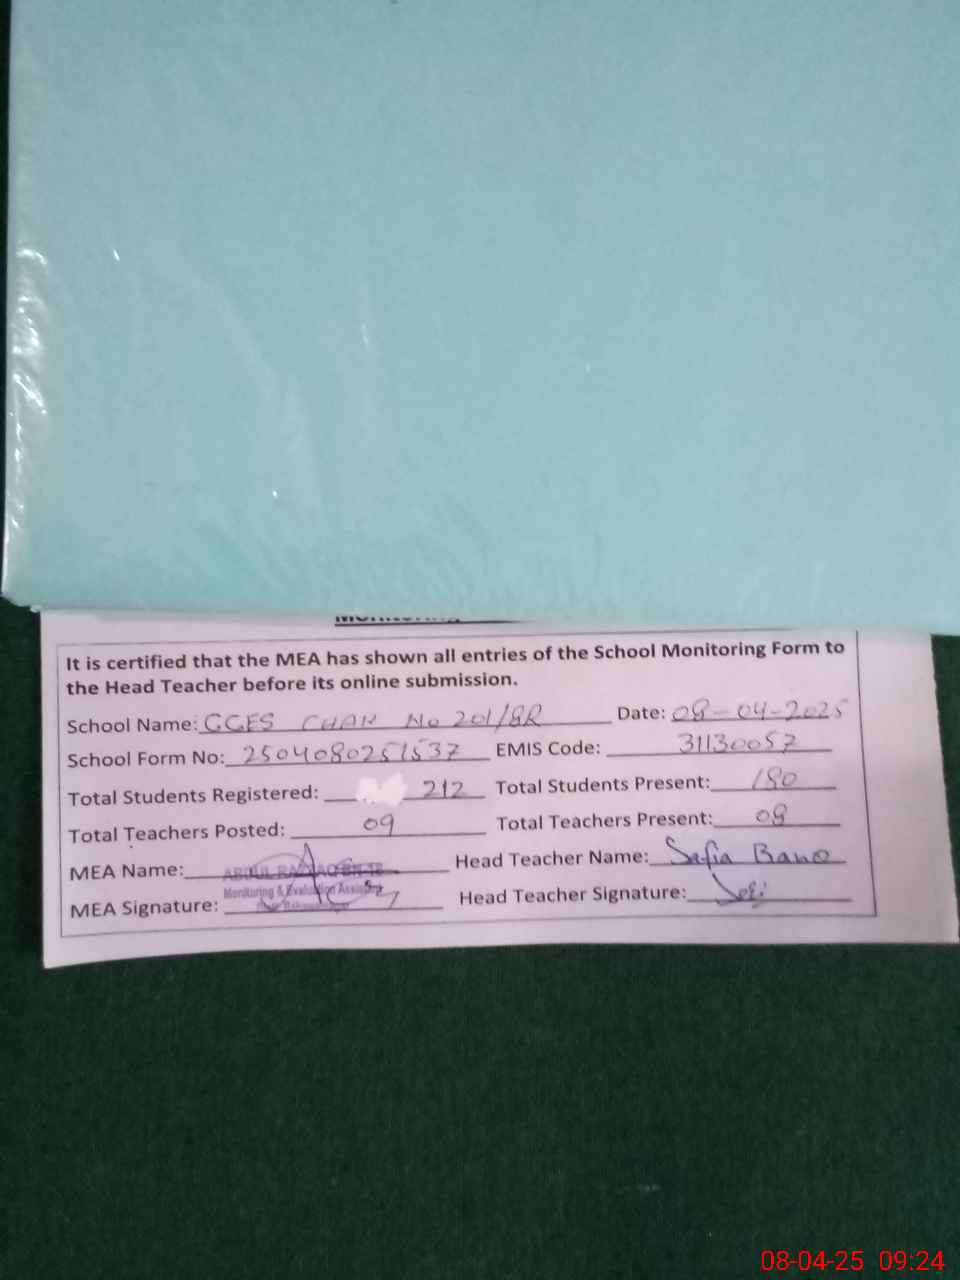 It is certified that the MEA has shown all entries of the School Monitoring Form to
the Head Teacher before its online submission.
School Name: GGES CHAK No 201/8R Date: 08-04-2025
School Form No: 2504080251537 EMIS Code: 31130057
Total Students Registered: 212 Total Students Present: 180
Total Teachers Posted: 09 Total Teachers Present: 08
MEA Name: ABDUL Head Teacher Name: Safia Bano
Monitoring & Evaluation Assistant
MEA Signature: Head Teacher Signature:
08-04-25 09:24